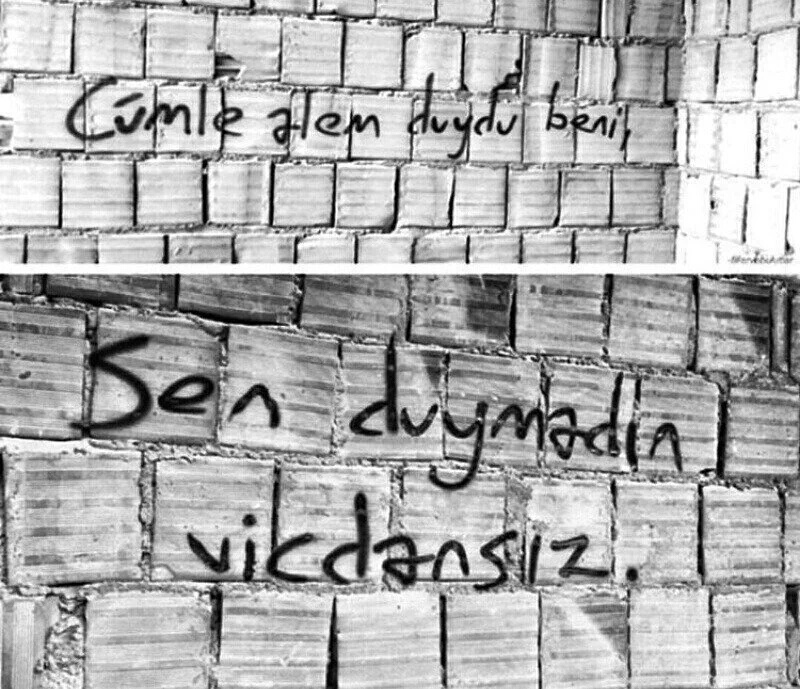 Cümle alem duydu beni,
Sen duymadın
vicdansız.